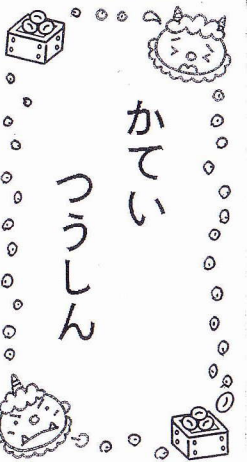 かてい
つうしん